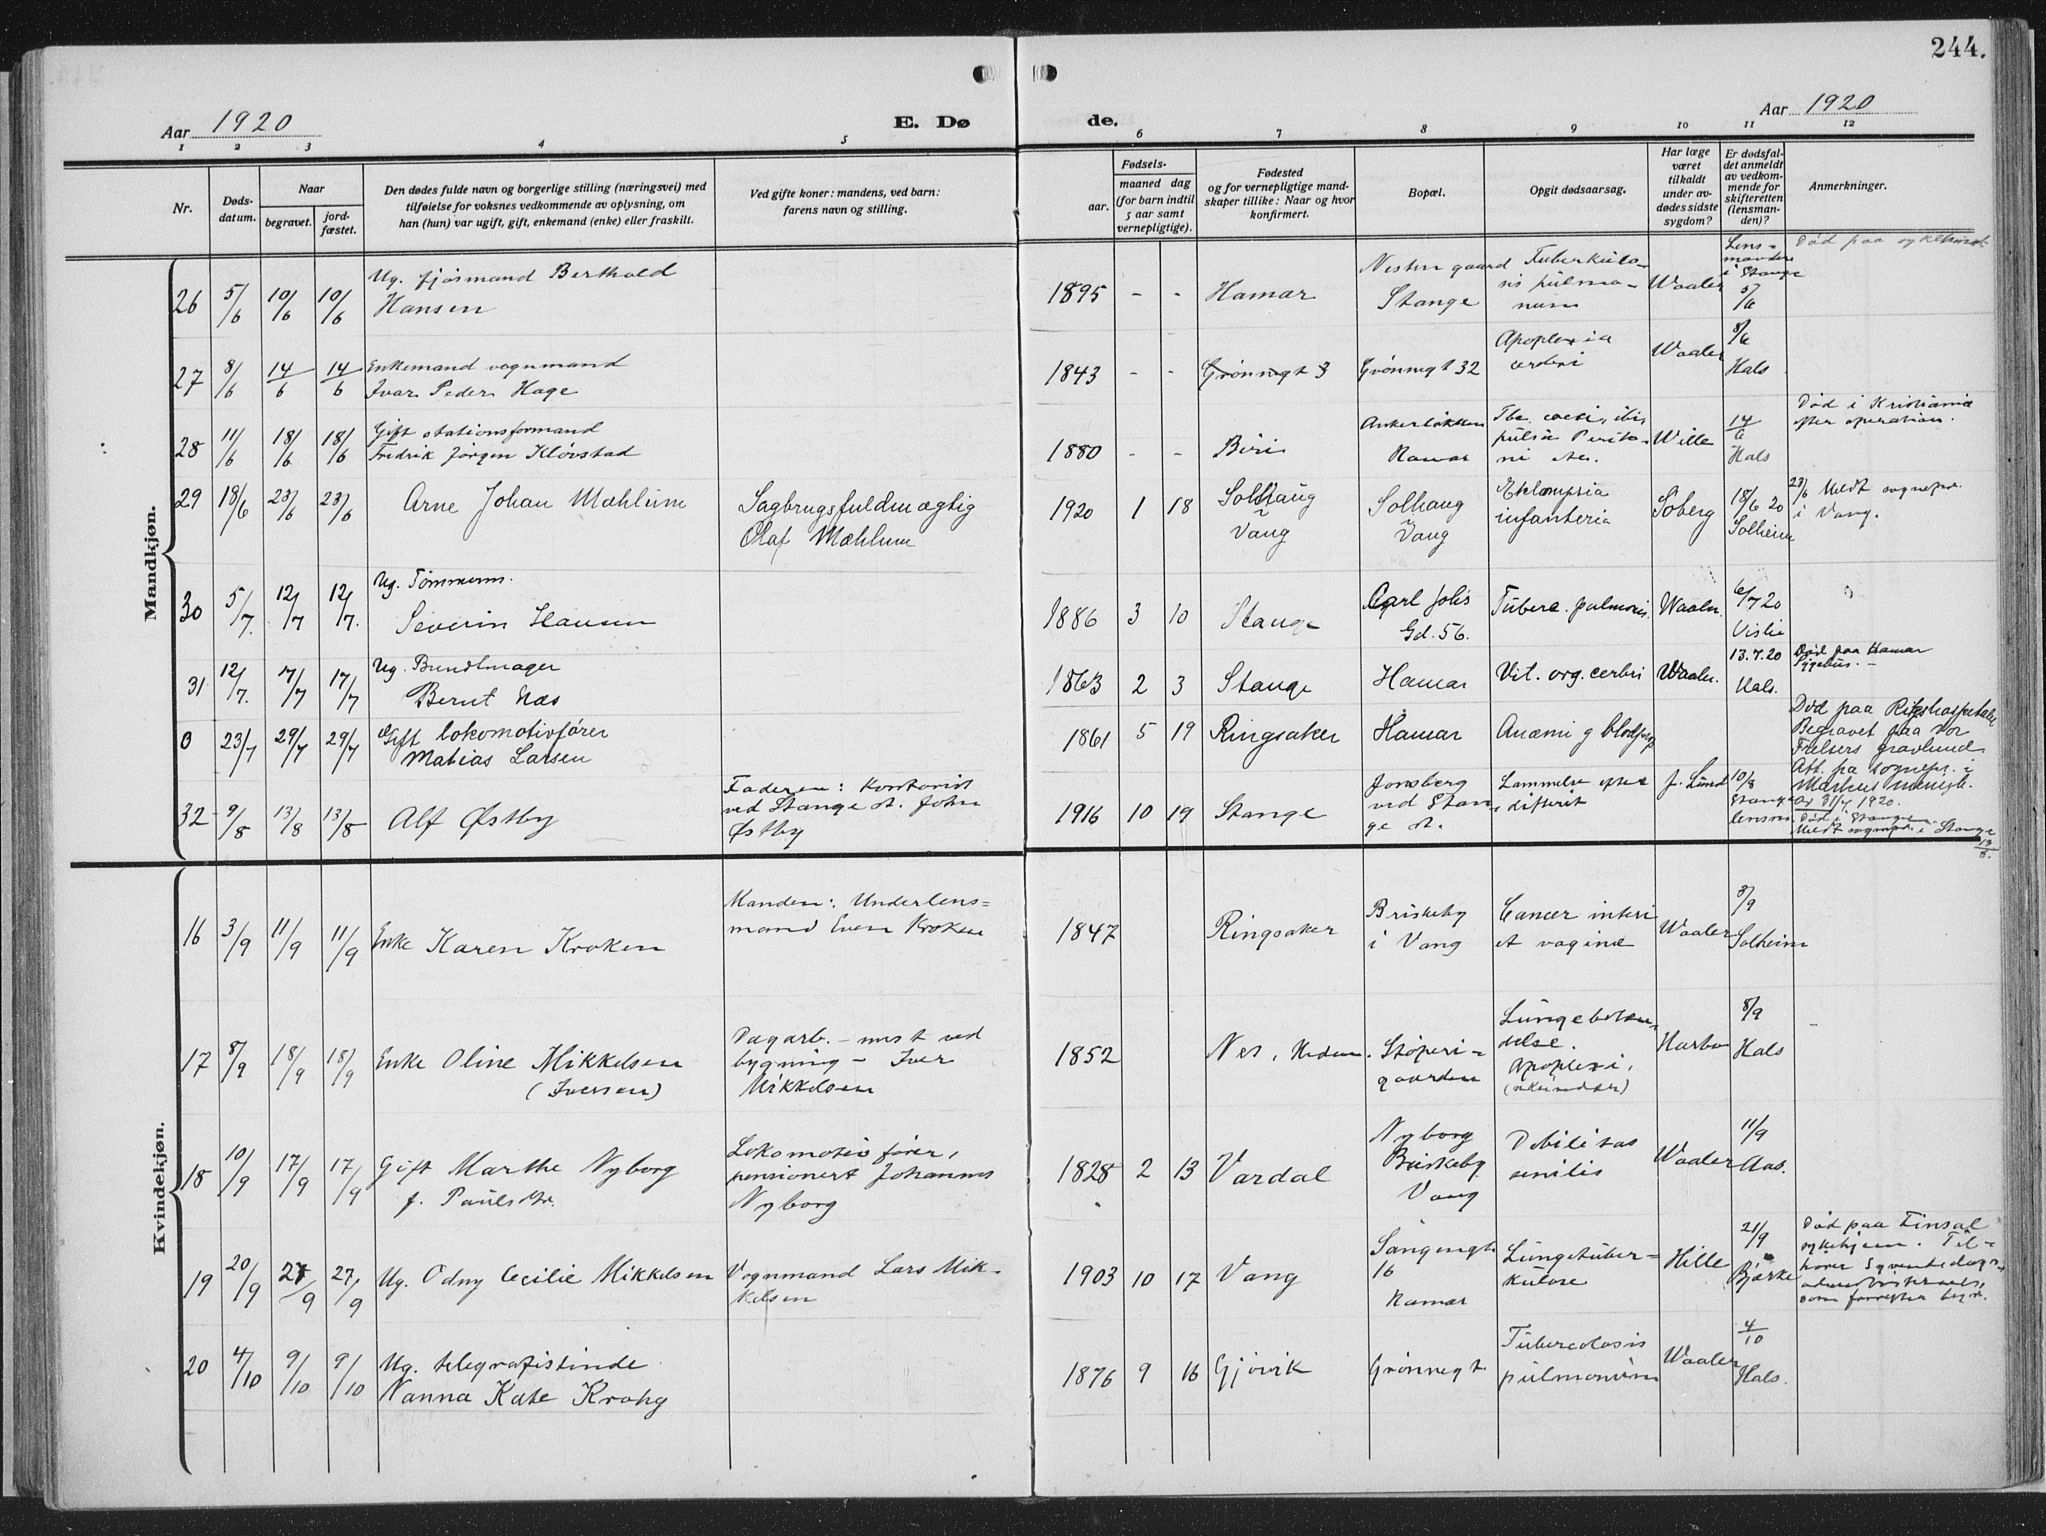 244.
Aar 1920
E. Dø
de.
Aar 1920
1 2 3 4 5 6 7 8 9 10 11 12
Nr.
Døds-
datum.
Naar
begravet.
jord-
fæstet.
Den dødes fulde navn og borgerlige stilling (næringsvei) med
tilføielse for voksnes vedkommende av oplysning, om
han (hun) var ugift, gift, enkemand (enke) eller fraskilt.
Ved gifte koner: mandens, ved barn:
farens navn og stilling.
Fødsels-
aar.
maaned dag
(for barn indtil
5 aar samt
vernepligtige).
Fødested
og for vernepligtige mand-
skaper tillike: Naar og hvor
konfirmert.
Bopæl.
Opgit dødsaarsag.
Har læge
været
tilkaldt
under av-
dødes sidste
sygdom?
Er dødsfal-
det anmeldt
av vedkom-
mende for
skifteretten
(lensman-
den)?
Anmerkninger.
Mandkjøn.
26 5/6 10/6 10/6
Ug. fjøsmand Berthold
Hansen
1895 - - Hamar
Stange
Tuberkulo-
sis pulmo-
num
Waaler
Lens-
i Stange
5/6
Død paa
27 8/6 14/6 14/6
Enkemand vognmand
Ivar Peder Hage
1843 - - Grønnegt 3
Grønnegt 32
Apoplexia
cerebri
Waaler
8/6
Hals
28 11/6 18/6 18/6
Gift stationsformand
Fredrik Jørgen Kløvstad
1880 - - Biri
Ankerløkken
Hamar
Wille
14/6
Hals
Død i Kristiania
efter operation.
29 18/6 23/6 23/6
Arne Johan Mæhlum
Sagbrugsfuldmægtig
Olaf Mæhlum
1920 1 18
Solhaug
Vang
Solhaug
Vang
Eklampsia
Søberg
18/6 20
Solheim
23/6 Meldt sognepr.
i Vang.
30 5/7. 12/7 12/7.
Ug. Tømmerm.
Severin Hansen
1886 3 10 Stange
Carl Johs
Gd. 56.
Tuberc. pulmonis
Waaler
6/7 20
Vislie
31 12/7. 17/7 17/7
Ug. Bundtmager
Bernt Næs
1863 2 3 Stange
Hamar
Vit. org. cerbri
Waaler.
13.7.20
Hals.
Død paa Hamar
Sygehus. -
0 23/7 29/7 29/7
Gift lokomotivfører
Matias Larsen
1861 5 19 Ringsaker
Hamar
Død paa Rikshospitalet
Begravet paa Vor
Frelsers gravlund
Att. fra sognepr. i
Markus menigh.
av 31/7 1920.
32 9/8 13/8 13/8
Alf Østby
Faderen: Kontorist
ved Stange st. John
Østby
1916 10 19 Stange
Jonsberg
ved Stan-
ge st.
Lammelse efter
difterit
J. Lund
10/8
Stange
lensm.
Død i Stange.
Meldt sognepr. i Stange
13/8.
Kvindekjøn.
16 3/9 11/9 11/9
Enke Karen Kroken
Manden: Underlens=
mand Even Kroken
1847
Ringsaker
Briskeby
i Vang
Cancer
et vaginæ
Waaler
3/9
Solheim
17 8/9 18/9 18/9
Enke Oline Mikkelsen
(Iversen)
Dagarb. - mest ved
bygning - Iver
Mikkelsen
1852
Nes, Hedm.
Støperi-
gaarden
Lungebeten-
delse.
Apoplexi,
Harbo
8/9
Hals
18 10/9 17/9 17/9
Gift Marthe Nyborg
f. Paulsdtr.
Lokomotivfører,
pensionert Johannes
Nyborg
1828 2 13 Vardal
Nyborg
Briskeby
Vang
Debilitas
senilis
Waaler
11/9
Aas.
19 20/9 27/9 27/9
Ug. Odny Cecilie Mikkelsen
Vognmand Lars Mik-
kelsen
1903 10 17 Vang
16
Hamar
Lungetuber-
kulose
Hille
21/9
Bjerke
Død paa Finsal
sykehjem. Til-
hører Syvendedags-
20 4/10 9/10 9/10
Ug. telegrafistinde
Nanna Kate Krohg
1876 9 16 Gjøvik
Grønnegt
Tuberculosis
pulmonum
Waaler
4/10
Hals.